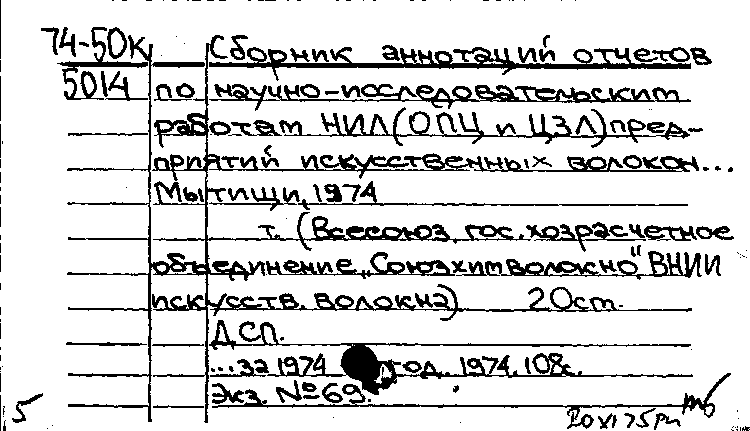 74-50к Сборник аннотаций отчетов
5014 по научно-исследовательским
работам НИЛ(ОПЦ и ЦЗЛ)пред-
приятий искусственных волокон...
Мытищи, 1974
т. (Всесоюз. гос. хозрасчетное
объединение „Союзхимволокно". ВНИИ
искусств. волокна) 20см.
ДСП.
...за 1974 год. 1974. 108с.
Экз. №69.
5 20 XI 75